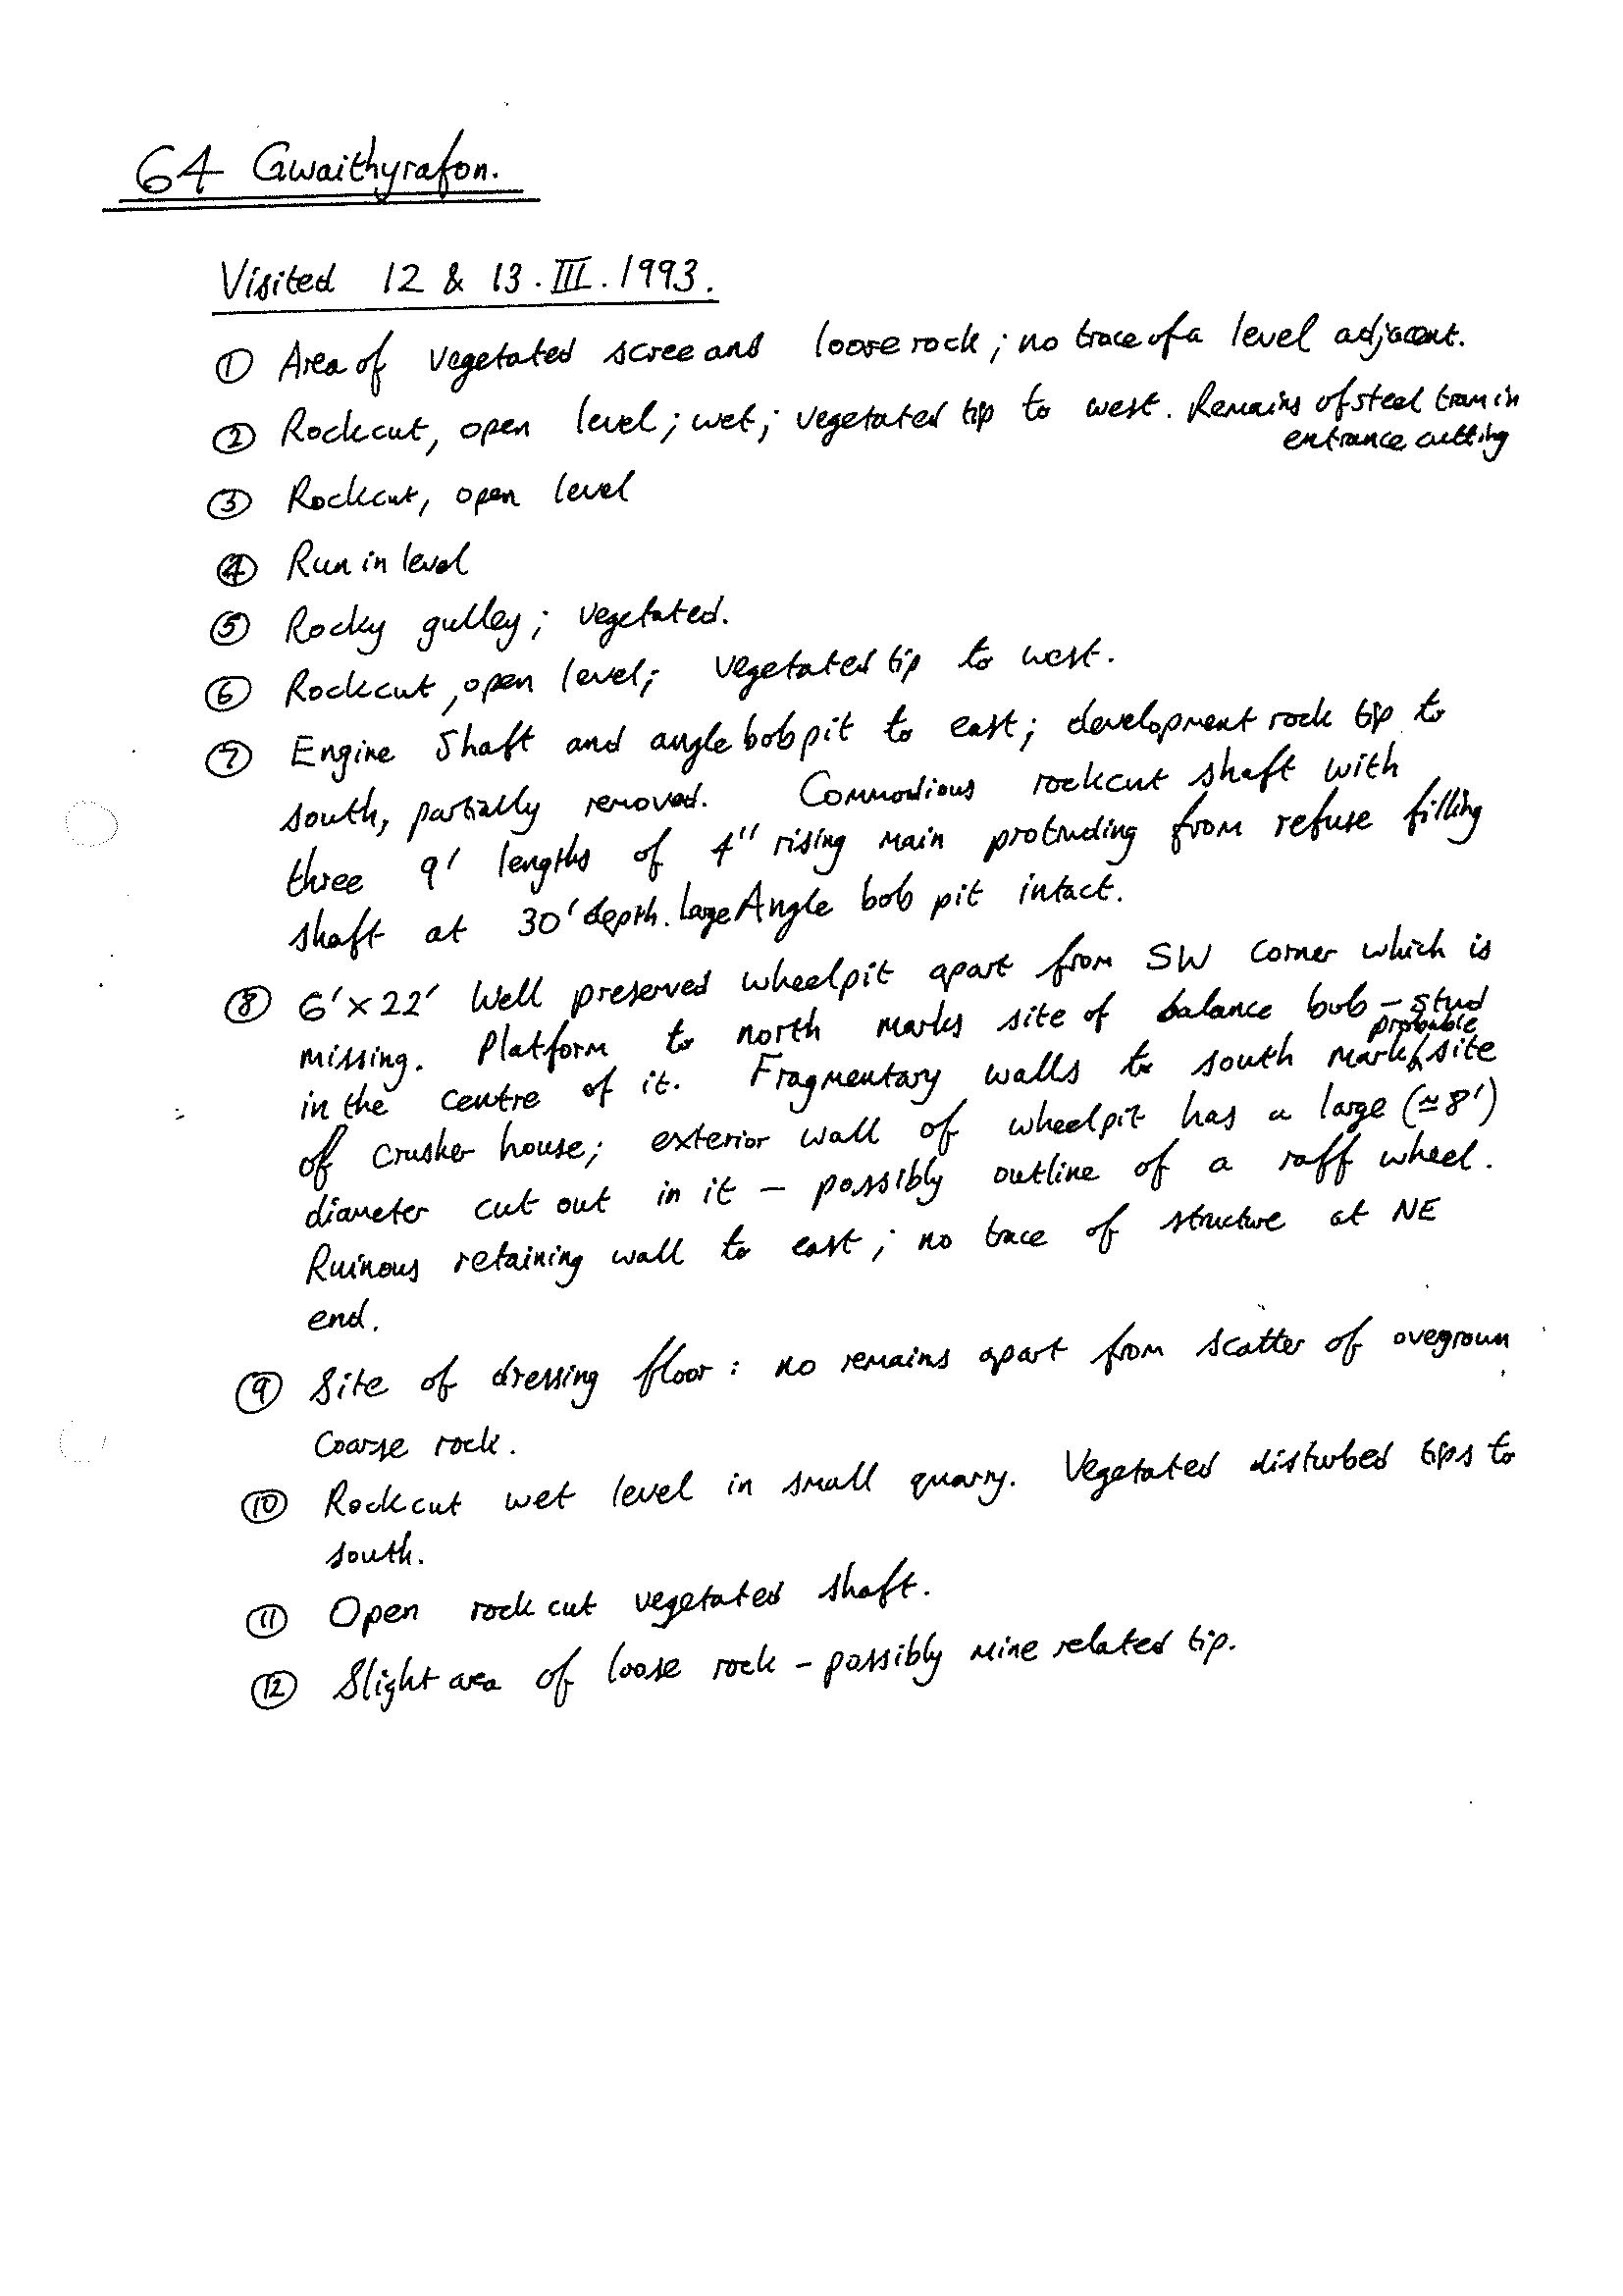 64 Gwaithyrafon.
Visited 12 & 13.III.1993.
① Area of vegetated scree and loose rock; no trace of a level adjacent.
② Rockcut, open level; wet; vegetated tip to west. Remains of steel tram in
entrance cutting
③ Rockcut, open level
④ Run in level
⑤ Rocky gulley; vegetated.
⑥ Rockcut, open level; vegetated tip to west.
⑦ Engine Shaft and angle bob pit to east; development rock tip to
south, partially removed. Commodious rockcut shaft with
three 9' lengths of 4" rising main protruding from refuse filling
shaft at 30' depth. large Angle bob pit intact.
⑧ 6' x 22' Well preserved wheelpit apart from SW corner which is
missing. Platform to north marks site of balance bob - stud
in the centre of it. Fragmentary walls to south mark probable site
of crusher house; exterior wall of wheelpit has a large (≃8')
diameter cut out in it - possibly outline of a raff wheel.
Ruinous retaining wall to east; no trace of structure at NE
end.
⑨ Site of dressing floor: no remains apart from scatter of overgrown
coarse rock.
⑩ Rockcut wet level in small quarry. Vegetated disturbed tips to
south.
⑪ Open rock cut vegetated shaft.
⑫ Slight area of loose rock - possibly mine related tip.